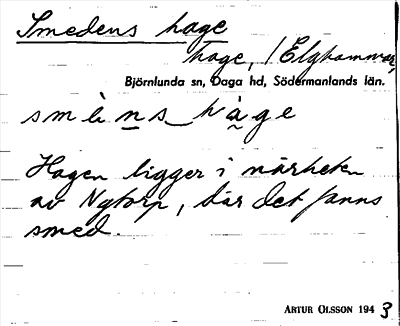 Smedens hage
hage, /Elghammar,
Björnlunda sn, Daga hd, Södermanlands län.
smèns hage
Hagen ligger i närheten
av Nytorp, där det fanns
smed.
ARTUR OLSSON 1943